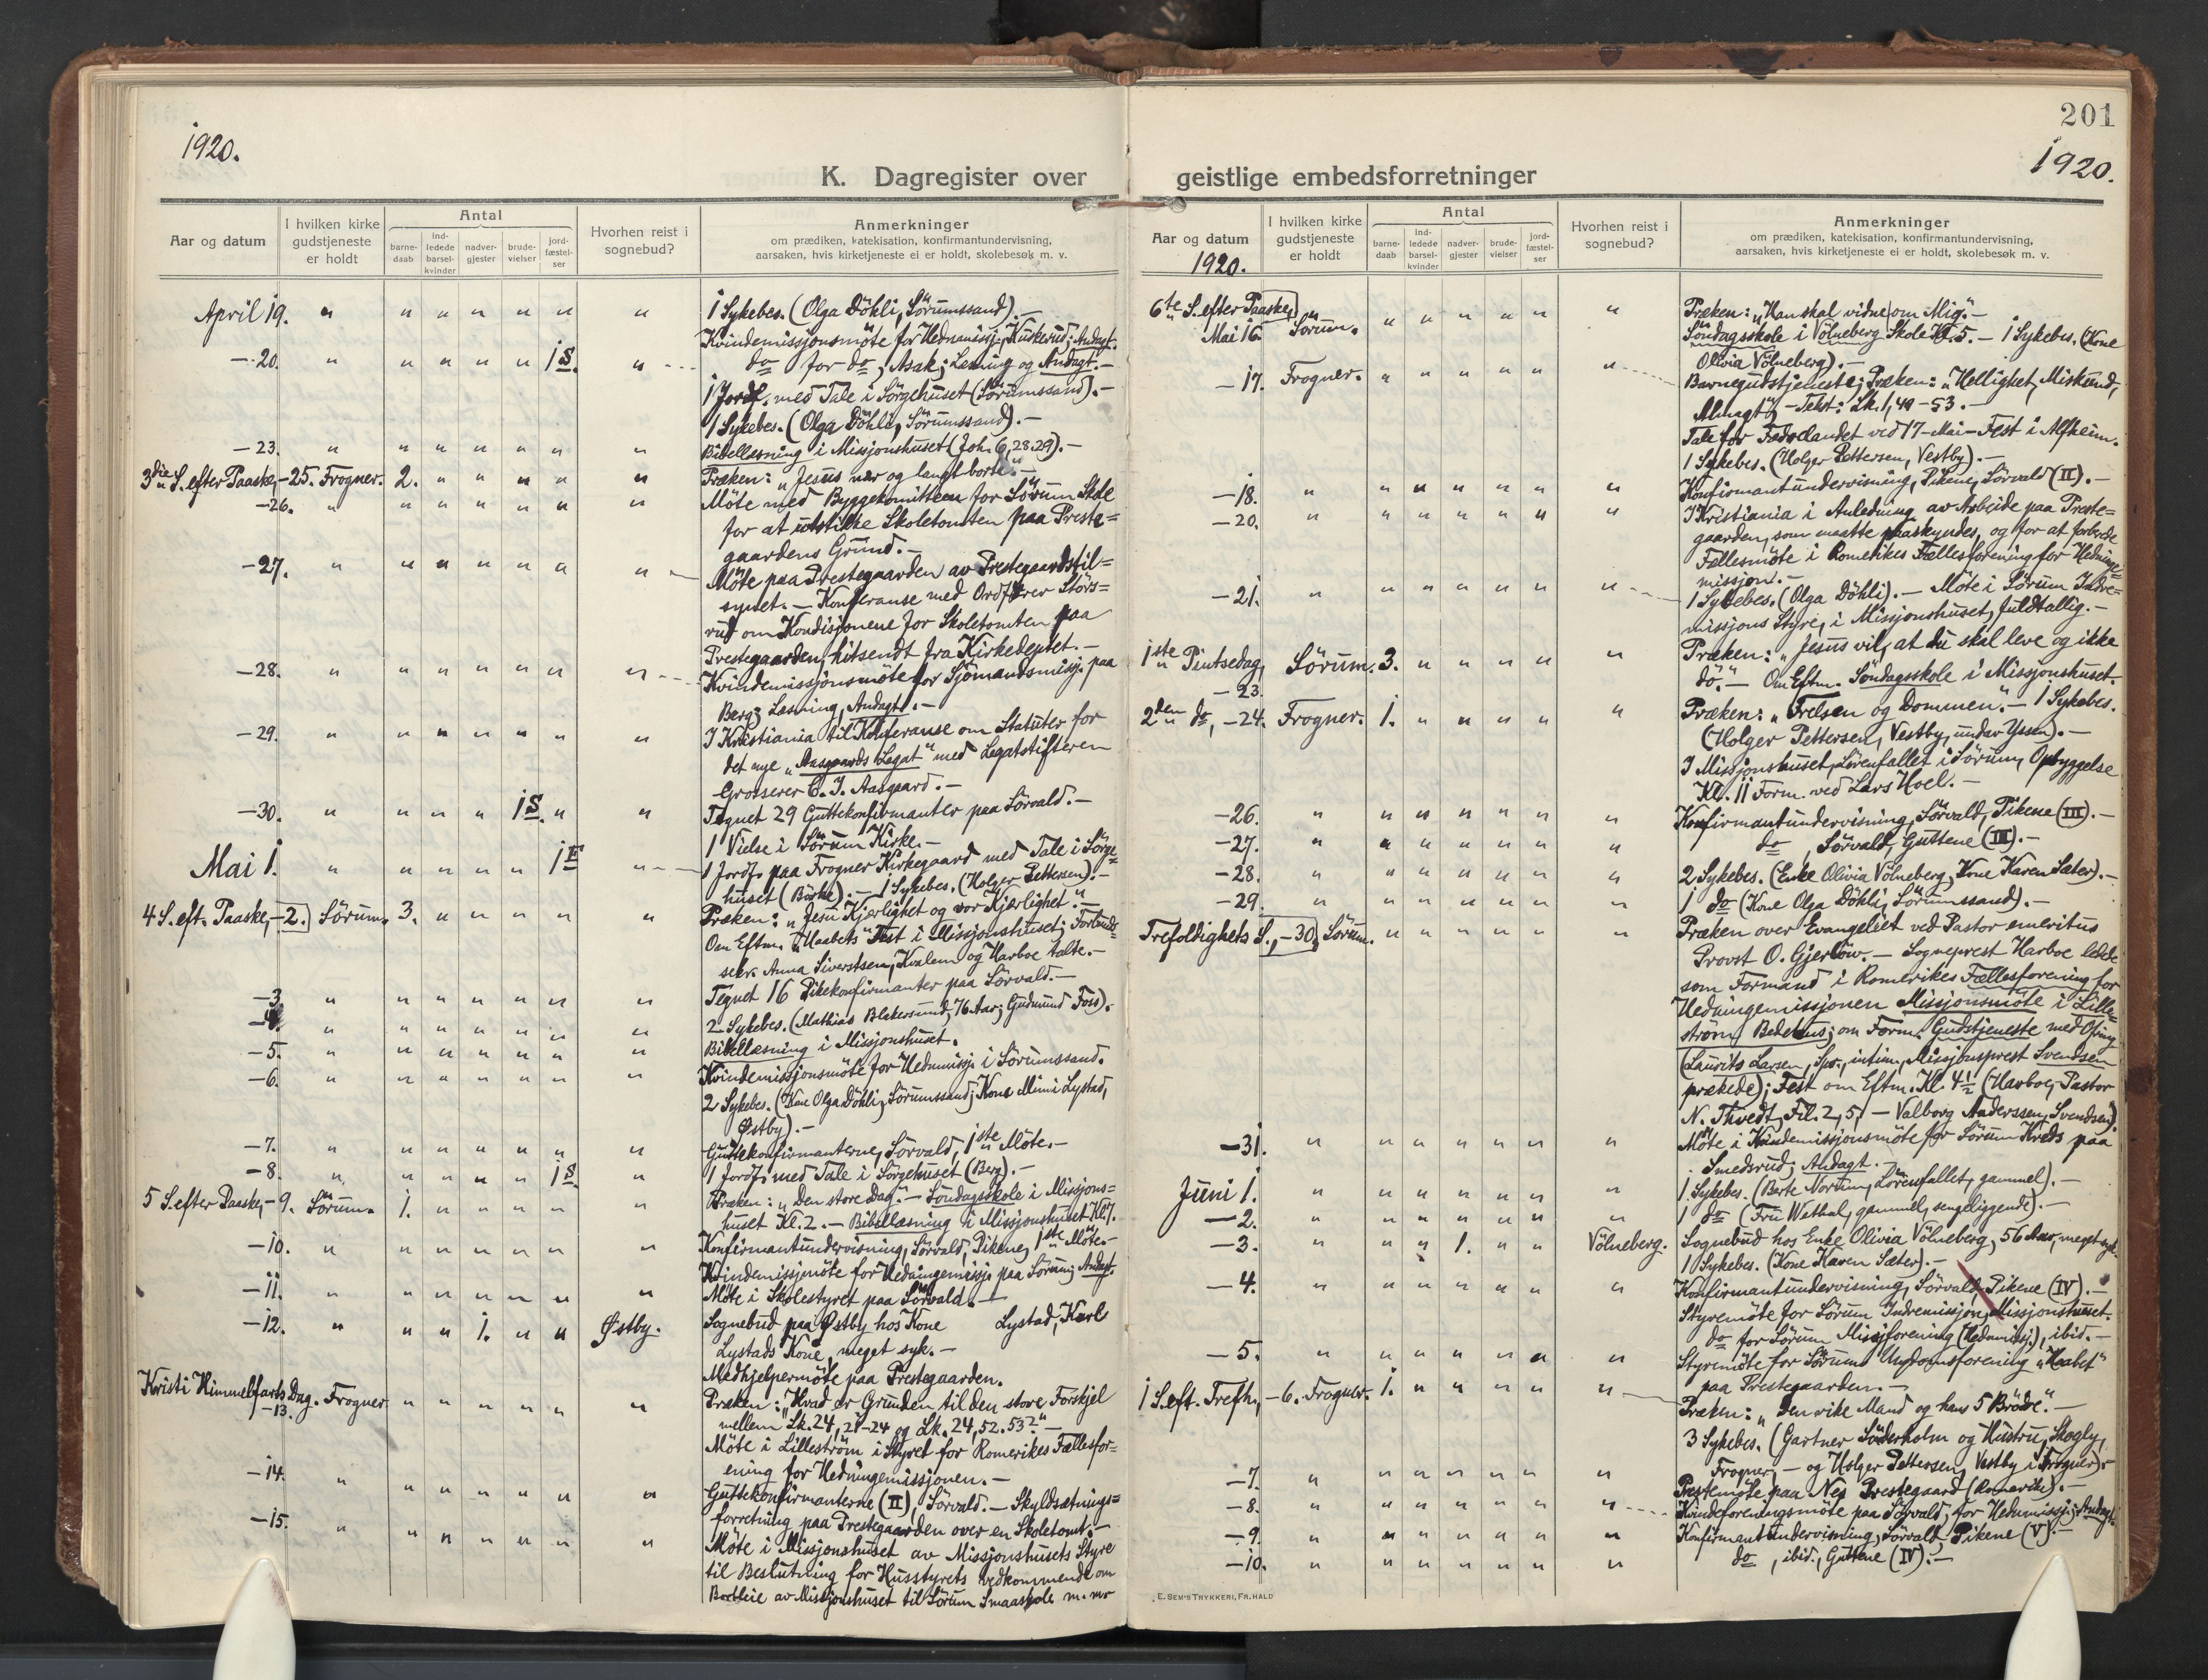 1920.
K. Dagregister over
Aar og datum
I hvilken kirke gudstjeneste er holdt
Antal
barne-daab
ind-ledede barsel-kvinder
nadver-gjester
brude-vielser
jord-fæstel-ser
Hvorhen reist i sognebud?
Anmerkninger
om prædiken, katekisation, konfirmantundervisning,
aarsaken, hvis kirketjeneste ei er holdt, skolebesøk m. v.
April 19. " " " " " " " 1 Sykebes. (Olga Döhli, Sörumssand). —
Kvindemissjonsmöte for Hednamissj., Kuskerud; Andagt.
— 20. " " " " " 1 S. " do for do, Asak; Læsning og Andagt. —
1 Jordf. med Tale i Sörgehuset (Sörumssand). —
1 Sykebes. (Olga Döhli, Sörumssand). —
— 23. " " " " " " " Bibellæsning i Missjonshuset (Joh. 6, 28.29). —
3die S. efter Paaske, — 25. Frogner. 2. " " " " " Præken: „Jesus nær og langt borte". —
— 26. " " " " " " " Möte med Byggekomitteen for Sörum Skole
for at utstikke Skoletomten paa Preste=
gaardens Grund. —
— 27. " " " " " " " Möte paa Prestegaarden av Prestegaardstil=
synet. — Konferanse med Ordfører Störs=
rud om Kondisjonene for Skoletomten paa
Prestegaarden, hitsendt fra Kirkedeptet. —
— 28. " " " " " " " Kvindemissjonsmöte for Sjömandsmissj. paa
Berg; Læsning, Andagt. —
— 29. " " " " " " " I Kristiania til Konferanse om Statuter for
det nye „Aasgaards Legat" med Legatstifteren
Grosserer C. J. Aasgaard. —
— 30. " " " " 1 S. " " Tegnet 29 Guttekonfirmanter paa Sörvald. —
1 Vielse i Sörum Kirke. —
Mai 1. " " " " " 1 F " 1 Jordf. paa Frogner Kirkegaard med Tale i Sörge=
huset (Börke). — 1 Sykebes. (Holger Pettersen). —
4 S. eft. Paaske, — 2. Sörum. 3. " " " " " Præken: „Jesu Kjærlighet og vor Kjærlighet". —
Om Eftm. „Haabets" Fest i Missjonshuset; Forbunds=
sekr. Anna Siverstsen, Kvalem og Harboe talte. —
— 3. " " " " " " " Tegnet 16 Pikekonfirmanter paa Sörvald. —
— 4. " " " " " " " 2 Sykebes. (Mathias Blakersund, 76 Aar; Gudmund Foss).
— 5. " " " " " " " Bibellæsning i Missjonshuset.
— 6. " " " " " " " Kvindemissjonsmöte for Hednmissj. i Sörumssand.
2 Sykebes. (Kone Olga Döhli, Sörumssand; Kone Mimi Lystad,
Østby). —
— 7. " " " " " " " Guttekonfirmanterne, Sörvald, 1ste Möte. —
— 8. " " " " " 1 S. " 1 Jordf. med Tale i Sörgehuset (Berg). —
5 S. efter Paaske, — 9. Sörum. 1. " " " " " Præken: „Den store Dag". — Söndagsskole i Missjons=
huset Kl. 2. — Bibellæsning i Missjonshuset Kl. 7.
— 10. " " " " " " " Konfirmantundervisning, Sörvald, Pikene, 1ste Möte. —
Kvindemissjmöte for Hedningemissj. paa Sörum; Andagt.
— 11. " " " " " " " Möte i Skolestyret paa Sörvald. —
— 12. " " " 1. " " Østby. Sognebud paa Østby hos Kone Lystad, Karl
Lystads Kone, meget syk. —
Medhjelpermöte paa Prestegaarden.
Kristi Himmelfarts Dag. — 13. Frogner " " " " " " Præken: „Hvad er Grunden til den store Forskjel
mellem Lk. 24, 21-24 og Lk. 24, 52.53?" —
Möte i Lilleström i Styret for Romerikes Fællesfor=
ening for Hedningemissjonen. —
— 14. " " " " " " " Guttekonfirmanterne (II), Sörvald. — Skyldsætnings=
forretning paa Prestegaarden over en Skoletomt. —
— 15. " " " " " " " Möte i Missjonshuset av Missjonshusets Styre
til Beslutning for Husstyrets vedkommende om
Bortleie av Missjonshuset til Sörum Smaaskole m. m.
201
1920.
geistlige embedsforretninger
Aar og datum
1920.
I hvilken kirke gudstjeneste er holdt
Antal
barne-daab
ind-ledede barsel-kvinder
nadver-gjester
brude-vielser
jord-fæstel-ser
Hvorhen reist i sognebud?
Anmerkninger
om prædiken, katekisation, konfirmantundervisning,
aarsaken, hvis kirketjeneste ei er holdt, skolebesøk m. v.
6te S. efter Paaske, Mai 16. Sörum. " " " " " " Præken: „Han skal vidne om Mig". —
Söndagsskole i Völneberg Skole Kl. 5. — 1 Sykebes. (Kone
Olivia Völneberg). —
— 17. Frogner. " " " " " " Barnegudstjeneste; Præken: „Hellighet, Miskund,
Almagt". — Tekst: Lk. 1, 49-53. —
Tale for Fædrelandet ved 17-Mai-Fest i Alfheim.
1 Sykebes. (Holger Pettersen, Vestby). —
— 18. " " " " " " " Konfirmantundervisning, Pikene, Sörvald (II). —
— 20. " " " " " " " I Kristiania i Anledning av Arbeide paa Preste=
gaarden, som maatte paaskyndes, og for at forberede
Fællesmöte i Romerikes Fællesforening for Hedninge=
missjon. —
— 21. " " " " " " " 1 Sykebes. (Olga Döhli). — Möte i Sörum Indre=
missjons Styre, i Missjonshuset, fuldtallig. —
1ste Pintsedag, — 23. Sörum. 3. " " " " " Præken: „Jesus vil, at du skal leve og ikke
dö". — Om Eftm. Söndagsskole i Missjonshuset.
2den do, — 24. Frogner. 1. " " " " " Præken: „Frelsen og Dommen". — 1 Sykebes.
(Holger Pettersen, Vestby, undar Yssen). —
I Missjonshuset, Lörenfallet i Sörum, Opbyggelse
Kl. 11 Form. ved Lars Hoel. —
— 26. " " " " " " " Konfirmantundervisning, Sörvald, Pikene (III). —
— 27. " " " " " " " do, Sörvald, Guttene (III). —
— 28. " " " " " " " 2 Sykebes. (Enke Olivia Völneberg, Kone Karen Sæter). —
— 29. " " " " " " " 1 do (Kone Olga Döhli, Sörumssand). —
Trefoldighets S., — 30. Sörum. " " " " " " Præken over Evangeliet ved Pastor emeritus
Provst O. Gjerlöw. — Sogneprest Harboe ledede
som Formand i Romerikes Fællesforening for
Hedningemissjonen Missjonsmöte i Lille=
ström Bedehus; om Form. Gudstjeneste med Ofring
(Laurits Larsen, Spr., intim., Missjonsprest Svendsen
prækede); Fest om Eftm. Kl. 4½ (Harboe, Pastor
N. Thvedt, Fil. 2, 5, — Valborg Anderssen, Svendsen).
— 31. " " " " " " " Möte i Kvindemissjonsmöte for Sörum Kreds paa
Smedsrud; Andagt. —
Juni 1. " " " " " " " 1 Sykebes. (Berte Nordum, Lörenfallet, gammel). —
— 2. " " " " " " " 1 do (Fru Wethal, gammel, sengeliggende). —
— 3. " " " 1. " " Völneberg. Sognebud hos Enke Olivia Völneberg, 56 Aar, meget syk.
1 Sykebes. (Kone Karen Sæter). —
— 4. " " " " " " " Konfirmantundervisning, Sörvald, Pikene (IV). —
Styremöte for Sörum Indremissjon, Missjonshuset.
do for Sörum Missjforening (Hednmissj), ibid. —
— 5. " " " " " " " Styremöte for Sörums Ungdomsforening „Haabet"
paa Prestegaarden. —
1 S. eft. Trefh., — 6. Frogner. 1. " " " " " Præken: „Den rike Mand og hans 5 Brödre". —
3 Sykebes. (Gartner Söderholm og Hustru, Skogly,
Frogner, — og Holger Pettersen, Vestby i Frogner). —
— 7. " " " " " " " Prestemöte paa Nes Prestegaard (Romerike). —
— 8. " " " " " " " Kvindeforeningsmöte paa Sörvald, for Hednmissj.; Andagt.
— 9. " " " " " " " Konfirmantundervisning, Sörvald, Pikene (V). —
— 10. " " " " " " " do, ibid., Guttene (IV). —
E. SEM'S TRYKKERI, FR.HALD